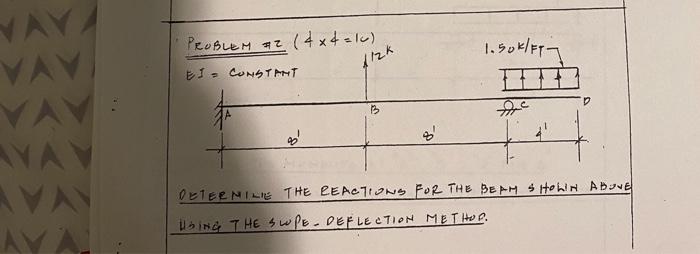 PROBLEM #2 (4x4=16)
1.50K/FT
12K
EI = CONSTANT
A
B
C
D
8'
8'
4'
DETERMINE THE REACTIONS FOR THE BEAM SHOWN ABOVE
USING THE SLOPE-DEFLECTION METHOD.